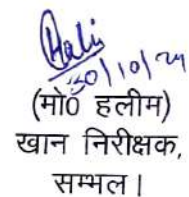 30/10/24
(मो0 हलीम)
खान निरीक्षक,
सम्भल।